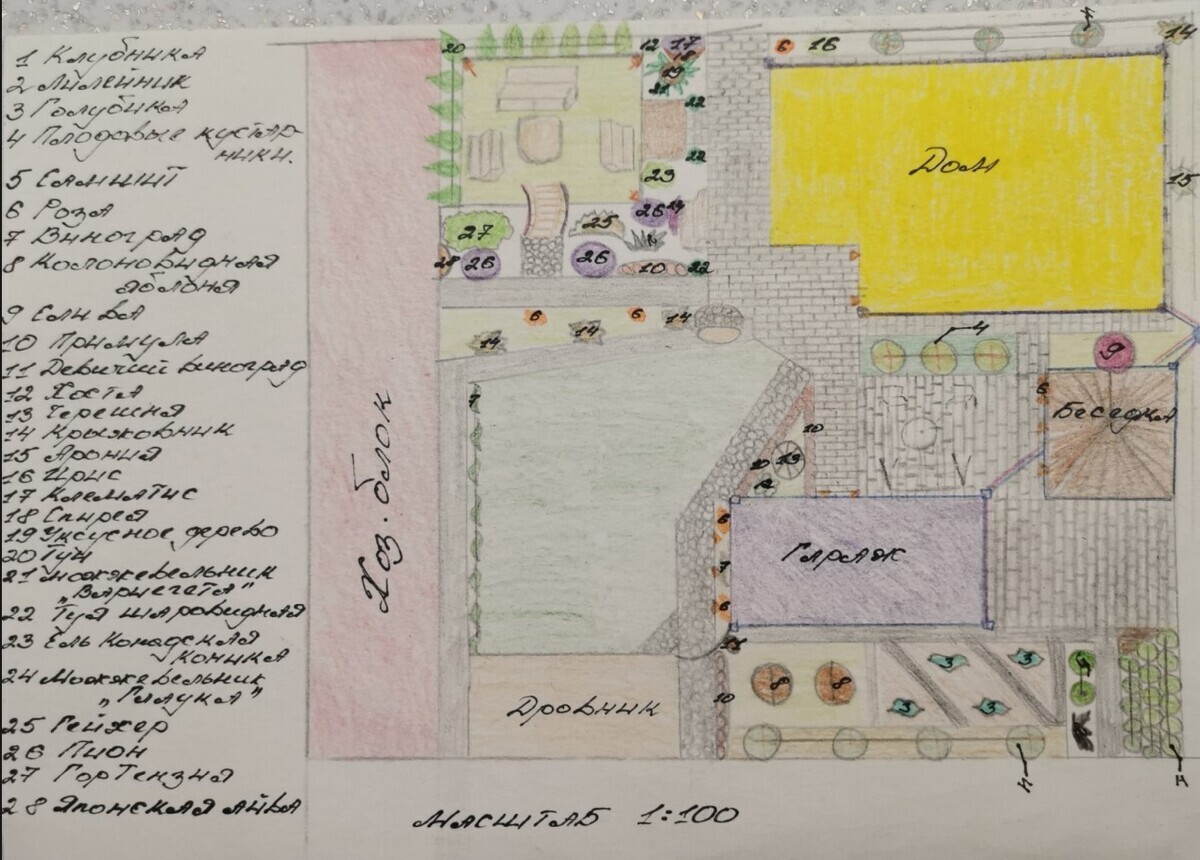 1 Клубника
2 Лилейник
3 Голубика
4 Плодовые кустар-
ники.
5 Самшит
6 Роза
7 Виноград
8 Колоновидная
яблоня
9 Слива
10 Примула
11 Девичий виноград
12 Хоста
13 Черешня
14 Крыжовник
15 Арония
16 Ирис
17 Клематис
18 Спирея
19 Уксусное дерево
20 Туи
21 Можжевельник
„Вариегата"
22 Туя шаровидная
23 Ель Конадская
коника
24 Можжевельник
„Глаука"
25 Гейхер
26 Пион
27 Гортензия
28 Японская айва
20
12 17
18
19
21
22
22
23
26 24
27
25
28 26
26
10
22
6 16
4
14
Дом
15
6
6
14
14
14
4
9
7
6
Беседка
10
13
Хоз. блок
6
Гараж
7
6
11
10
8
8
3
3
3
3
Дровник
Масштаб 1:100